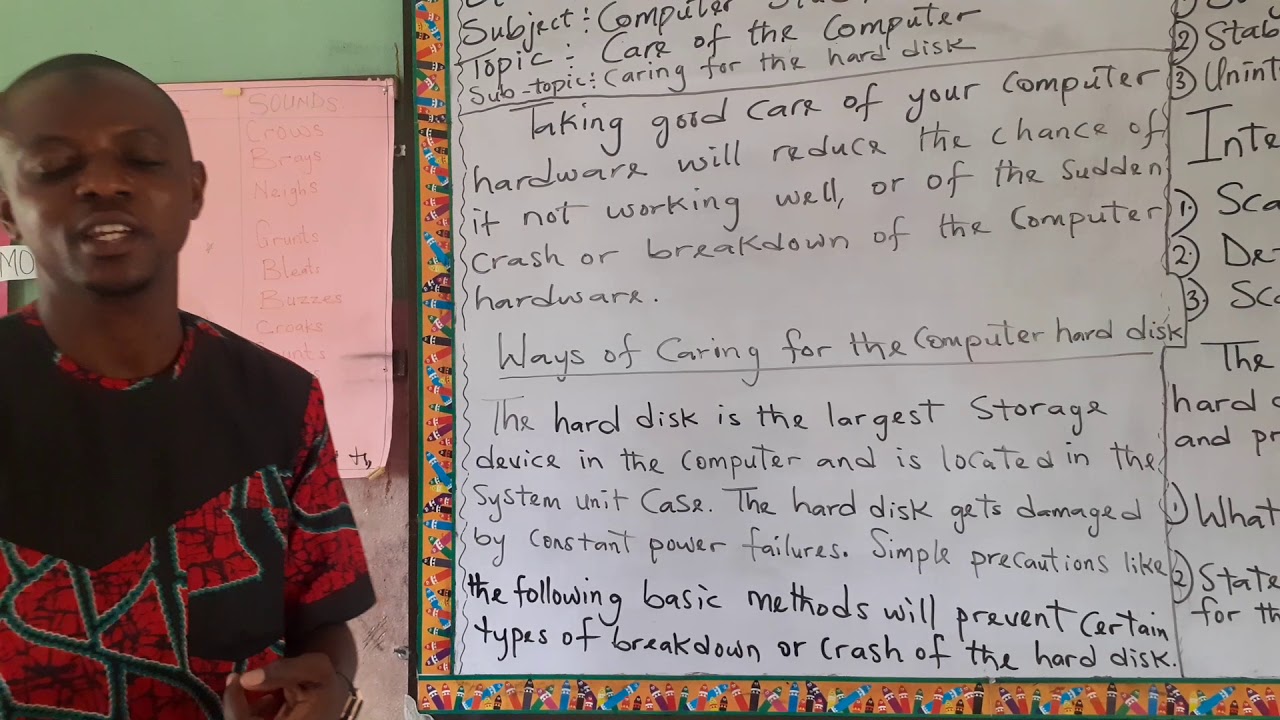 Subject: Computer
Topic: Care of the Computer
Sub-topic: Caring for the hard disk
Taking good care of your Computer
hardware will reduce the chance of
it not working well, or of the Sudden
Crash or breakdown of the Computer
hardware.
Ways of Caring for the Computer hard disk
The hard disk is the largest Storage
device in the computer and is located in the
System unit Case. The hard disk gets damaged
by Constant power failures. Simple precautions like
the following basic methods will prevent Certain
types of breakdown or Crash of the hard disk.
②
③
①
②
③
The
hard
and
① What
② State
for
SOUNDS
Crows
Brays
Neighs
Grunts
Bleats
Buzzes
Croaks
MO